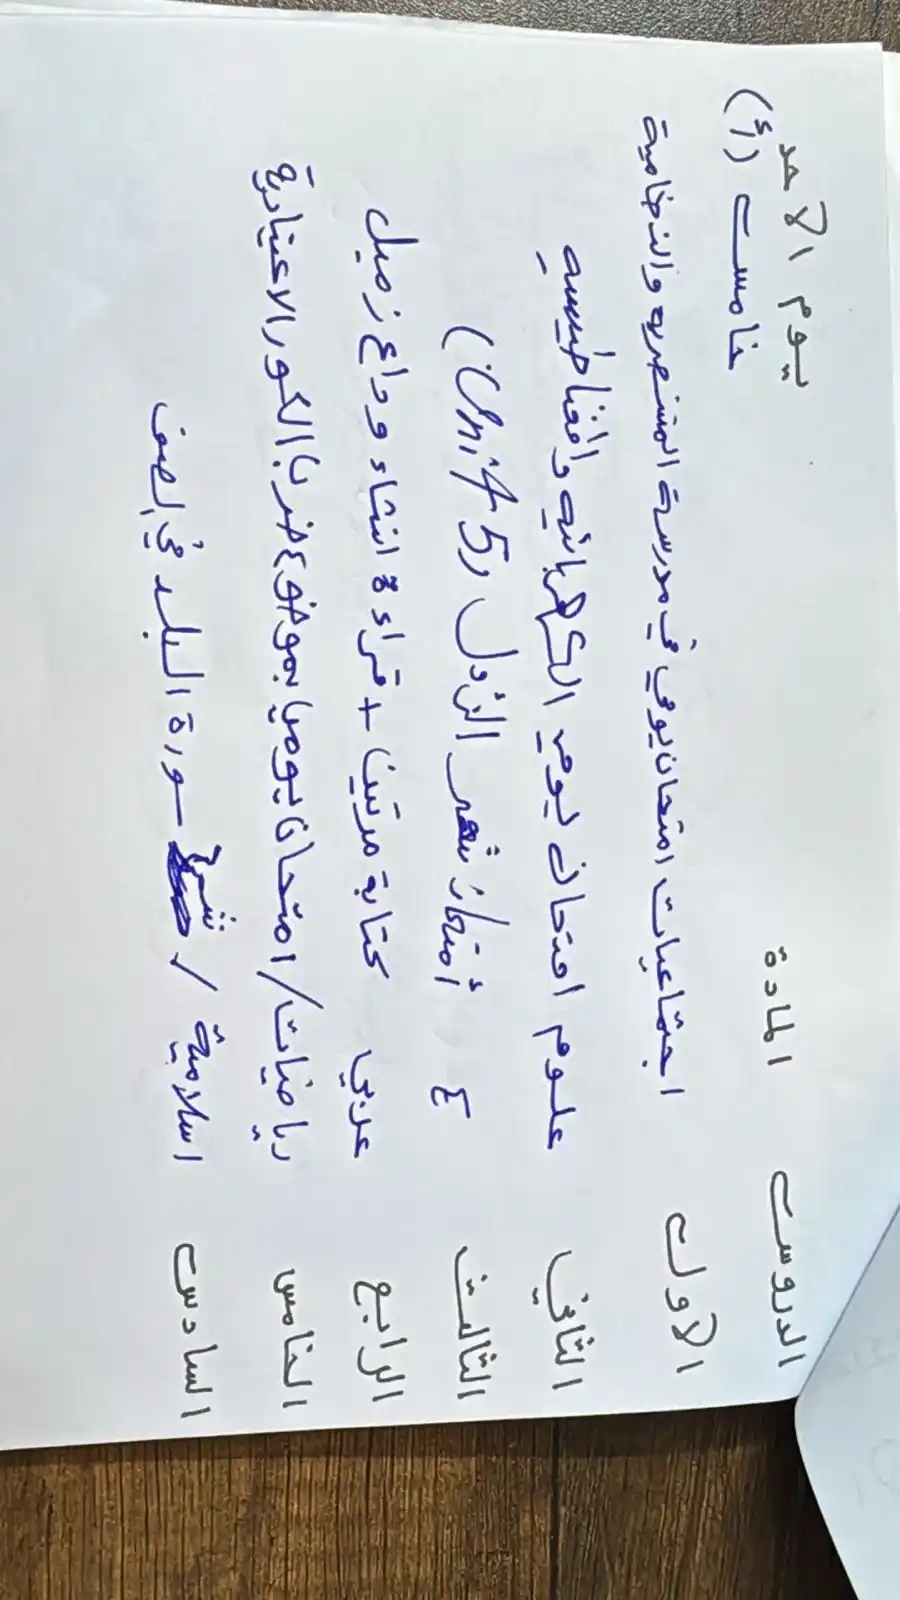 يوم الاحد
خامس (أ)
الدروس المادة
الاول اجتماعيات امتحان يومي في مدرسة المستنصريه والنضامية
الثاني علوم امتحان يومي الكهربائيه والمغناطيسيه
الثالث E أمتحان شهر الأول (Unit 4 و 5)
الرابع عربي كتابة مرتين + قراءة انشاء وداع زميل
الخامس رياضيات / امتحان يومي بموضوع ضرب الكسور الاعتيادية
السادس اسلامية / شرح سورة البلد في الصف